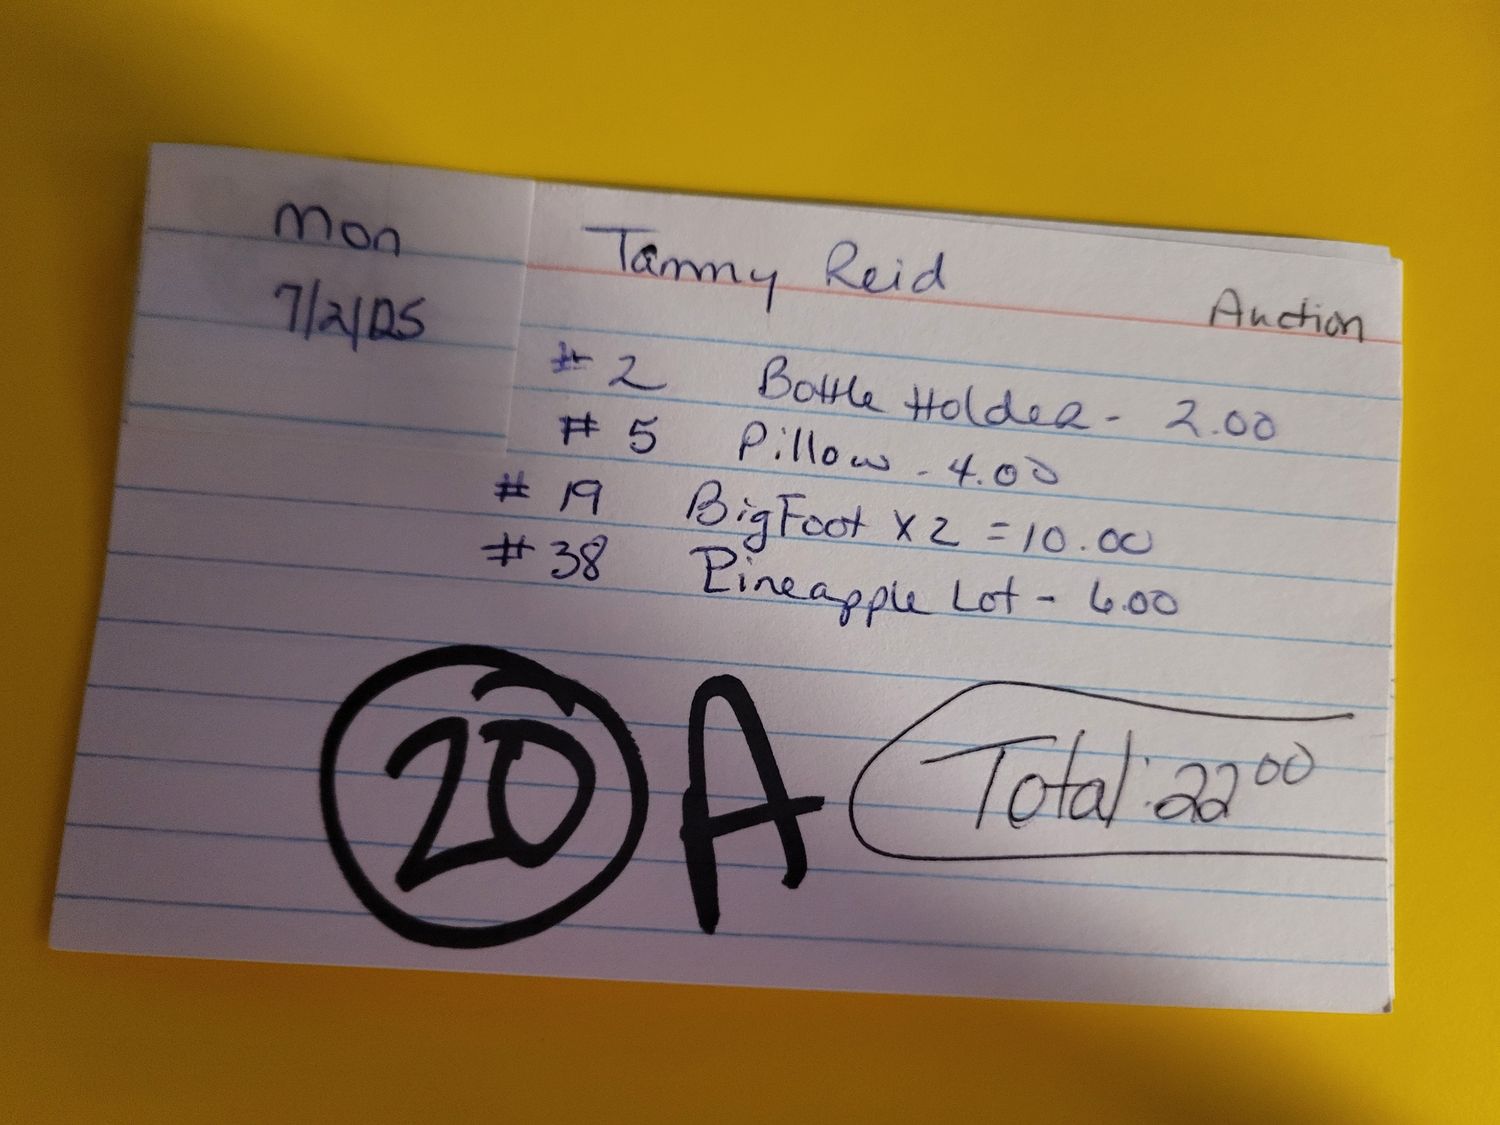 Mon
7/21/25
Tammy Reid
Auction
# 2 Bottle Holder - 2.00
# 5 Pillow - 4.00
# 19 BigFoot x 2 = 10.00
# 38 Pineapple Lot - 6.00
20 A
Total: 22 00